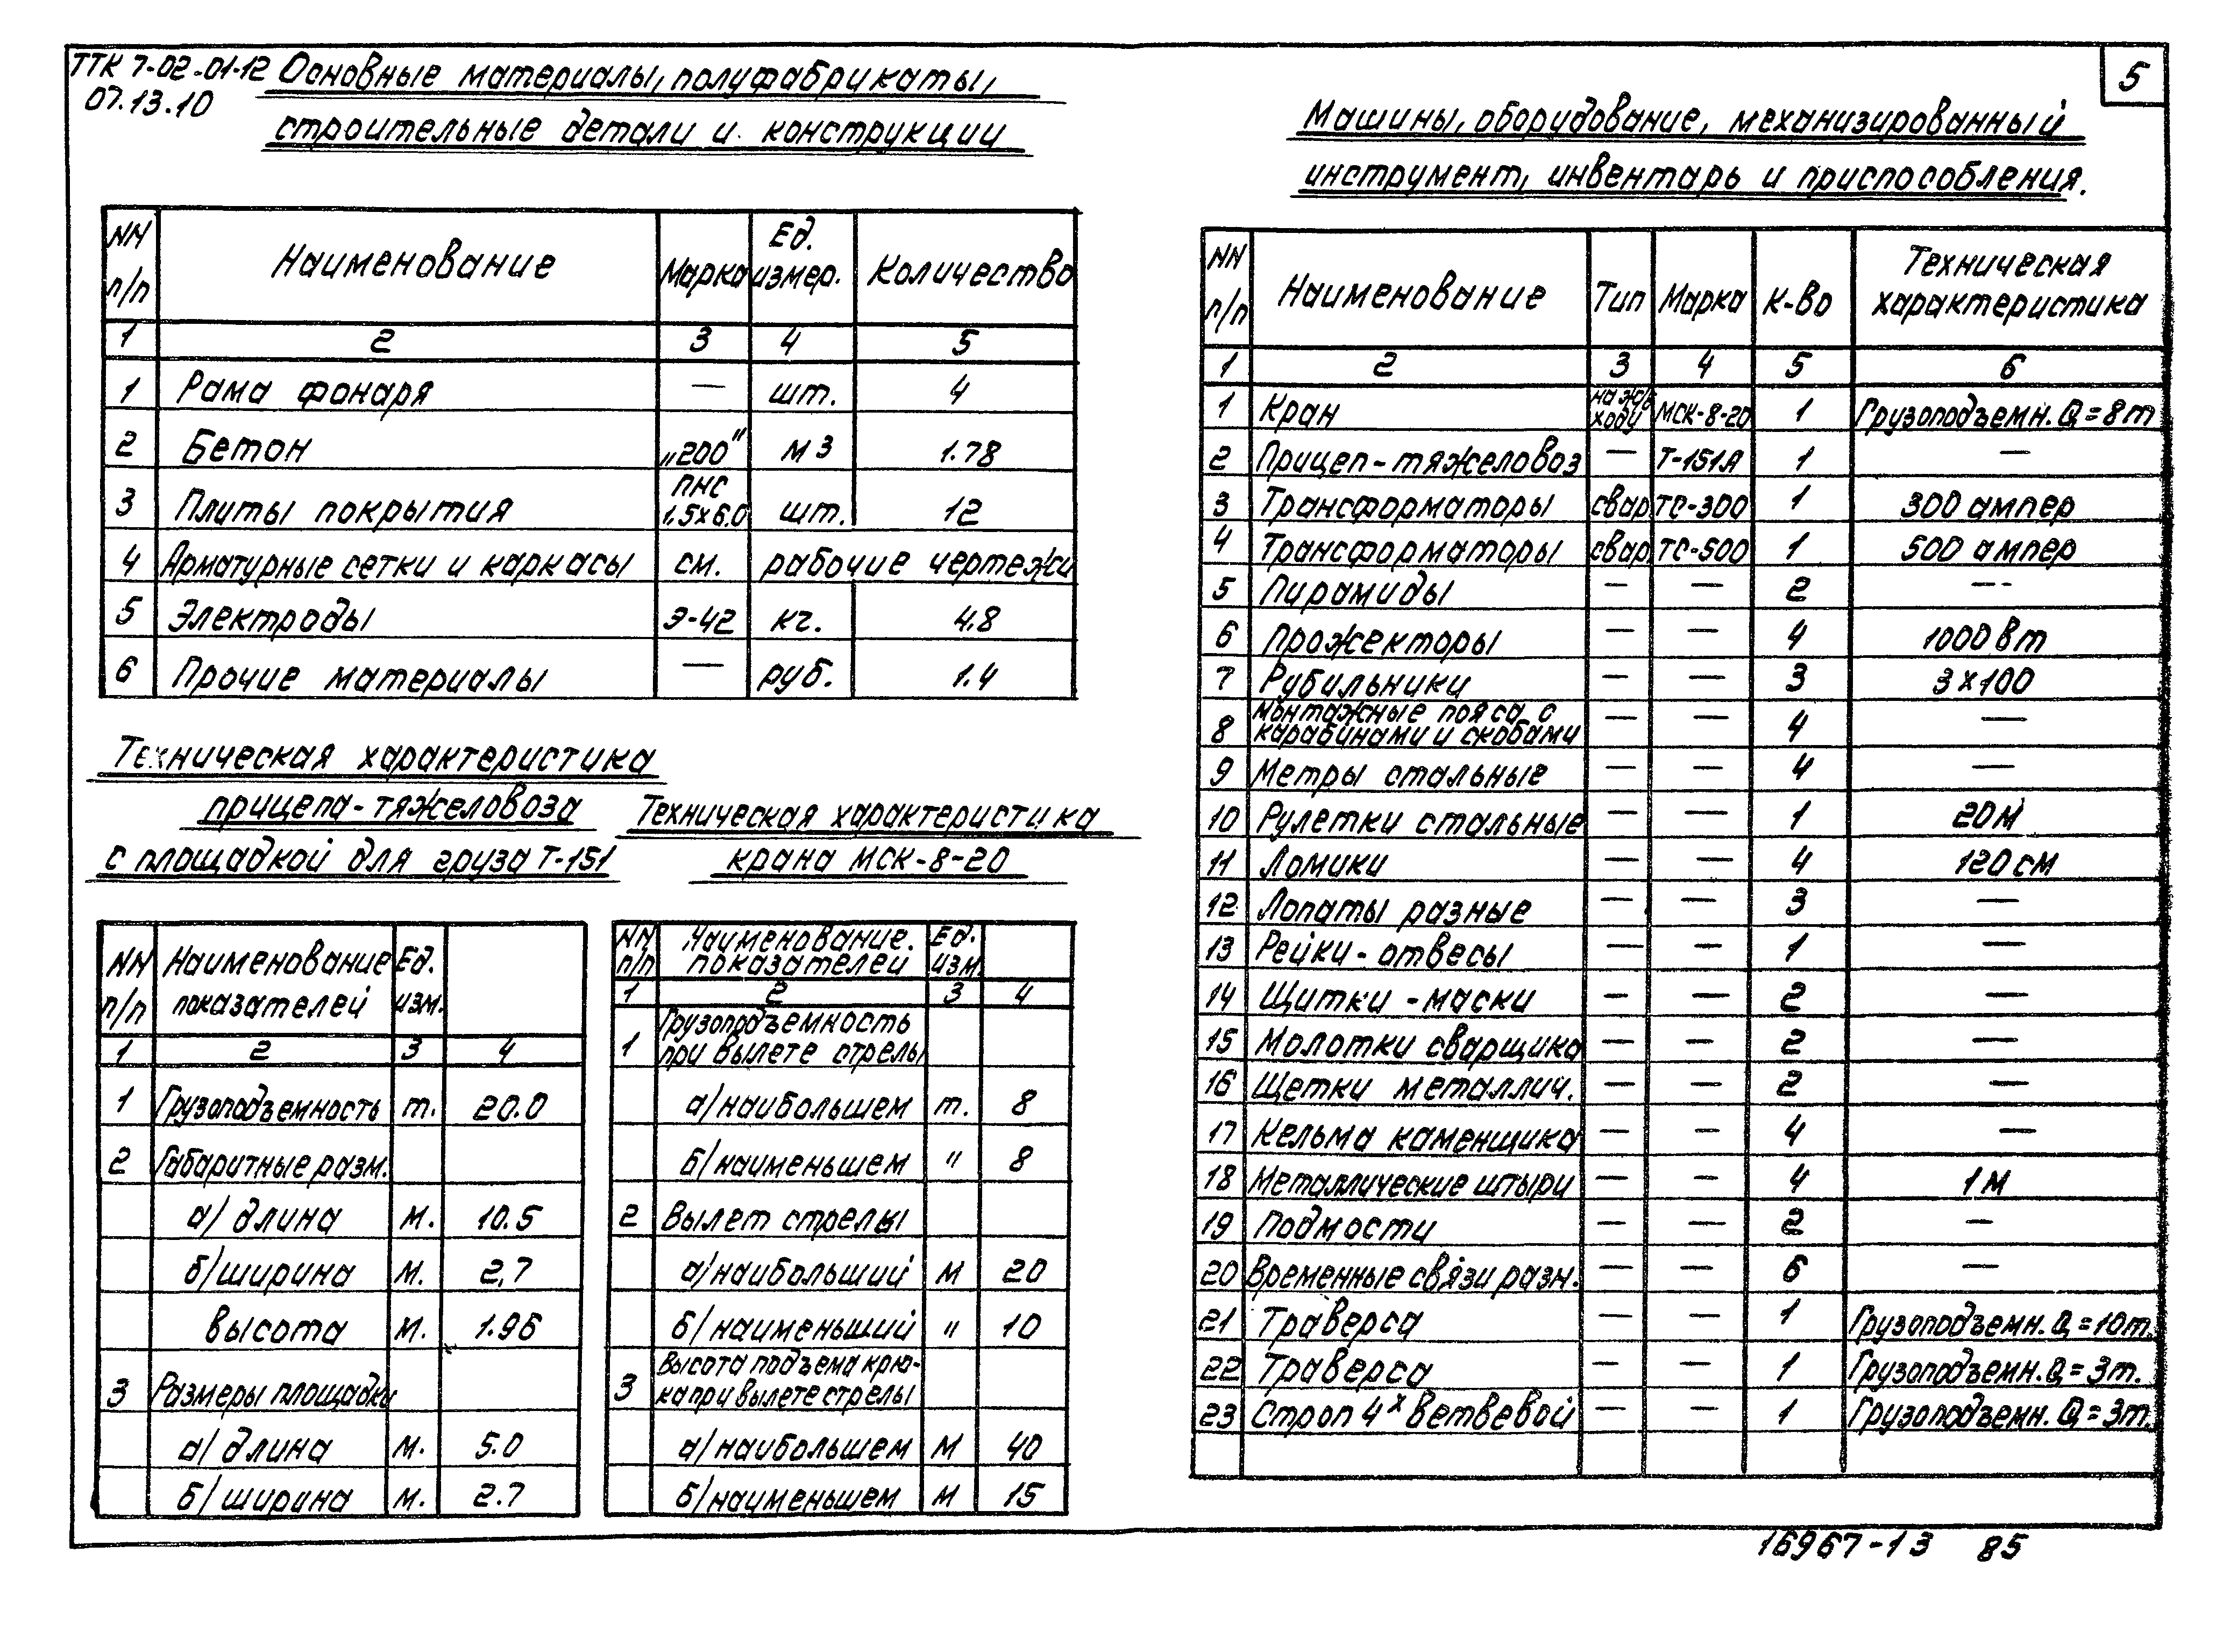 ТТК 7-02-01-12
07.13.10
5
Основные материалы, полуфабрикаты,
строительные детали и конструкции
NN п/п Наименование Марка Ед. измер. Количество
1 2 3 4 5
1 Рама фонаря — шт. 4
2 Бетон „200" м3 1.78
3 Плиты покрытия ПНС 1,5х6.0 шт. 12
4 Арматурные сетки и каркасы см. рабочие чертежи
5 Электроды Э-42 кг. 4.8
6 Прочие материалы — руб. 1.4
Техническая характеристика
прицепа-тяжеловоза
с площадкой для груза Т-151
NN п/п Наименование показателей Ед. изм.
1 2 3 4
1 Грузоподъемность т. 20.0
2 Габаритные разм.
а/ длина м. 10.5
б/ ширина м. 2,7
высота м. 1.96
3 Размеры площадки
а/ длина м. 5.0
б/ ширина м. 2.7
Техническая характеристика
крана МСК-8-20
NN п/п Наименование. показателей Ед. изм.
1 2 3 4
1 Грузоподъемность
при вылете стрелы
а/ наибольшем т. 8
б/ наименьшем " 8
2 Вылет стрелы
а/ наибольший м 20
б/ наименьший " 10
3 Высота подъема крю-
ка при вылете стрелы
а/ наибольшем м 40
б/ наименьшем м 15
Машины, оборудование, механизированный
инструмент, инвентарь и приспособления.
NN п/п Наименование Тип Марка К-во Техническая характеристика
1 2 3 4 5 6
1 Кран на ж/д ходу МСК-8-20 1 Грузоподъемн. Q=8т
2 Прицеп-тяжеловоз — Т-151А 1 —
3 Трансформаторы свар ТС-300 1 300 ампер
4 Трансформаторы свар. ТС-500 1 500 ампер
5 Пирамиды — — 2 —
6 Прожекторы — — 4 1000 вт
7 Рубильники — — 3 3х100
8 Монтажные пояса с карабинами и скобами — — 4 —
9 Метры стальные — — 4 —
10 Рулетки стальные — — 1 20м
11 Ломики — — 4 120 см
12 Лопаты разные — — 3 —
13 Рейки-отвесы — — 1 —
14 Щитки-маски — — 2 —
15 Молотки сварщика — — 2 —
16 Щетки металлич. — — 2 —
17 Кельма каменщика — — 4 —
18 Металлические штыри — — 4 1м
19 Подмости — — 2 —
20 Временные связи разн. — — 6 —
21 Траверса — — 1 Грузоподъемн. Q=10т.
22 Траверса — — 1 Грузоподъемн. Q=3т.
23 Строп 4х ветвевой — — 1 Грузоподъемн. Q=3т.
16967-13 85